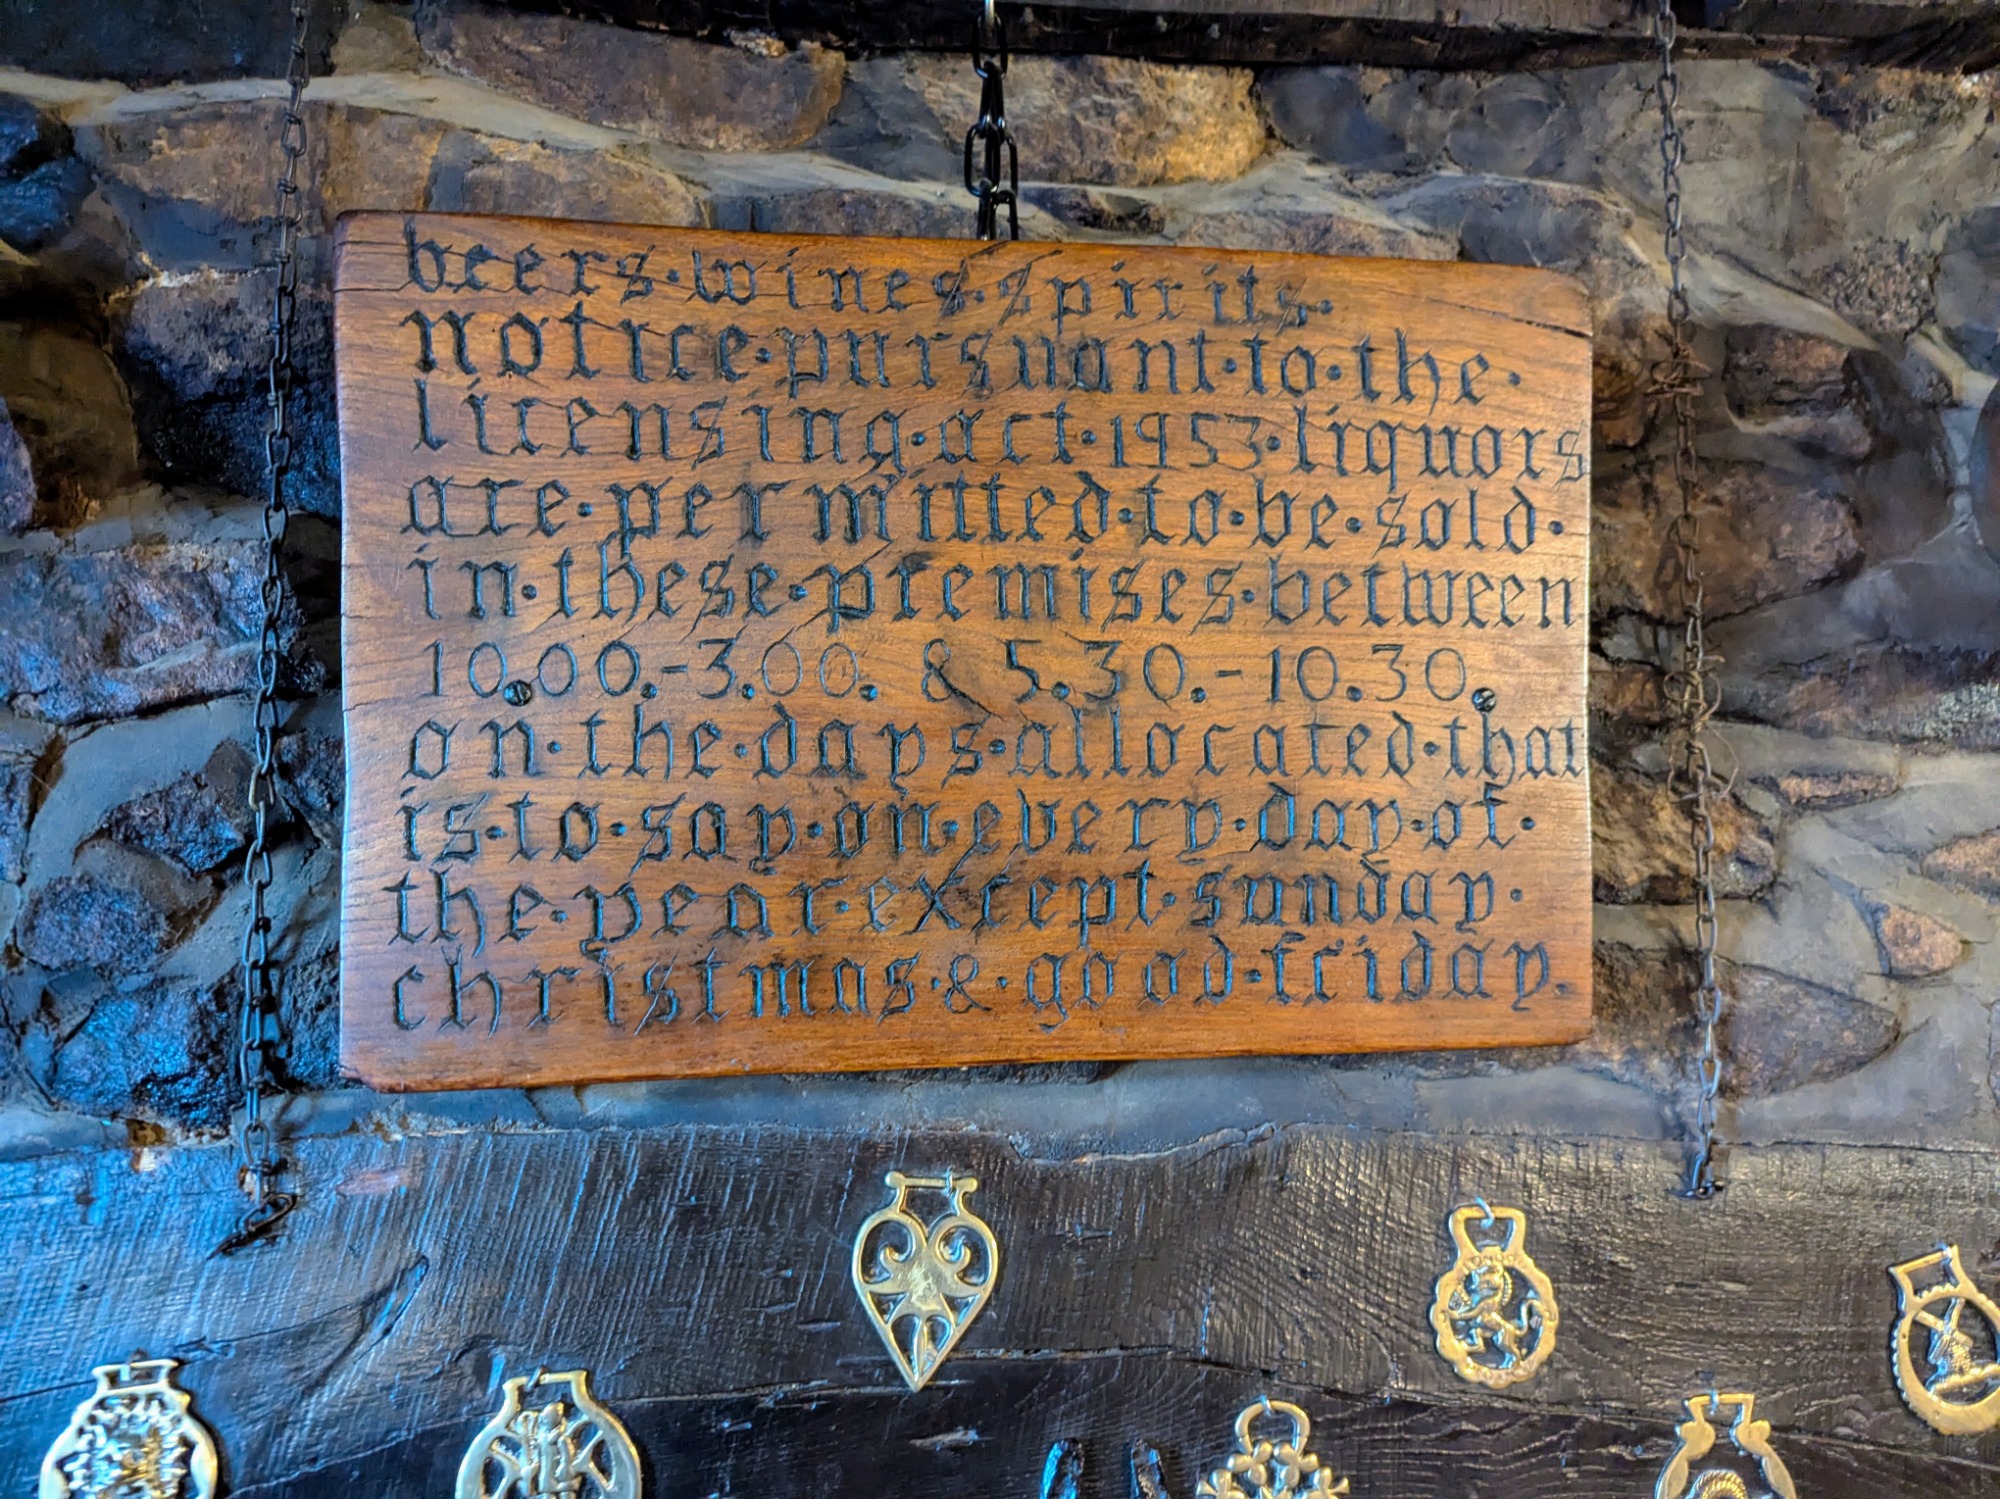 beers·wines·spirits·
notice·pursuant·to·the·
licensing·act·1953·liquors
are·permitted·to·be·sold·
in·these·premises·between
10.00.-3.00. & 5.30.-10.30.
on·the·days·allocated·that
is·to·say·on·every·day·of·
the·year·except·sunday·
christmas·&·good·friday.